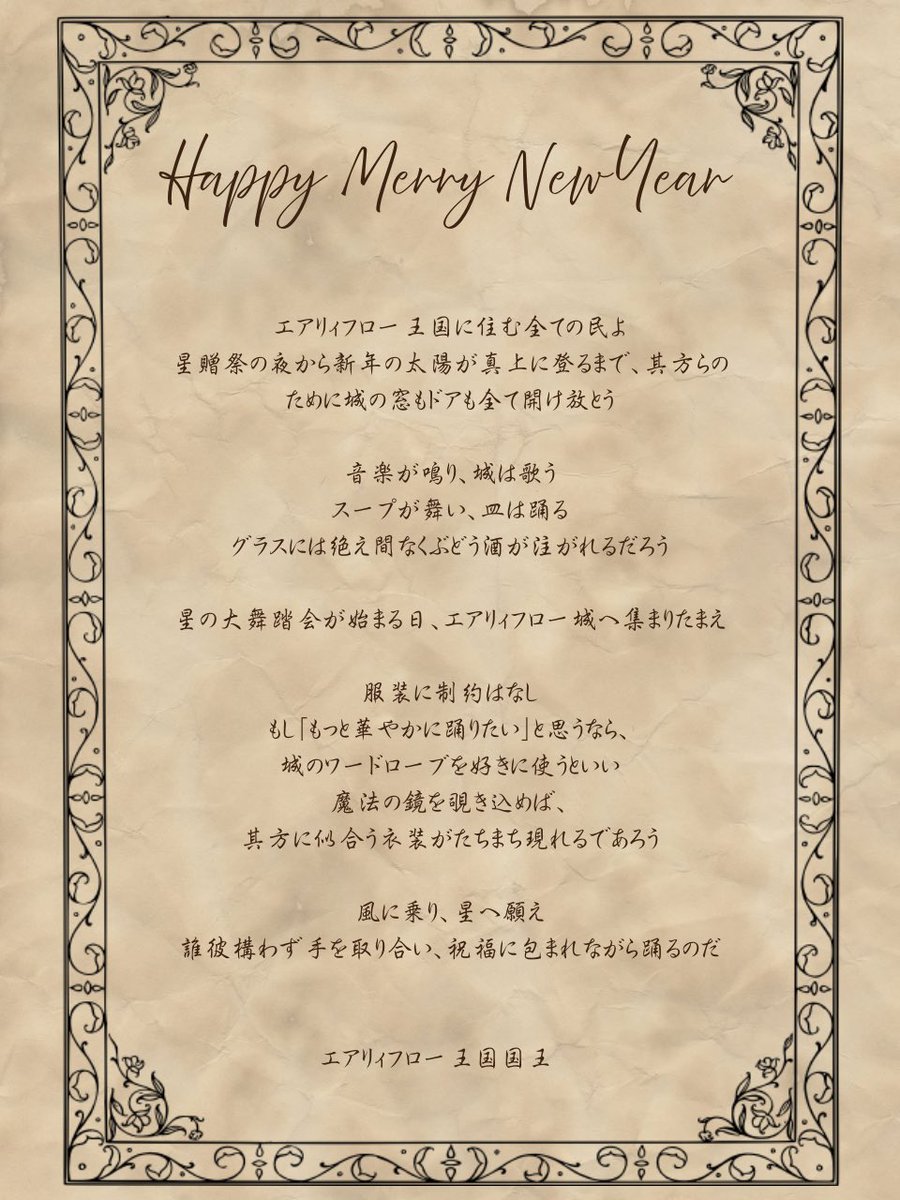 Happy Merry NewYear
エアリィフロー王国に住む全ての民よ
星贈祭の夜から新年の太陽が真上に登るまで、其方らの
ために城の窓もドアも全て開け放とう
音楽が鳴り、城は歌う
スープが舞い、皿は踊る
グラスには絶え間なくぶどう酒が注がれるだろう
星の大舞踏会が始まる日、エアリィフロー城へ集まりたまえ
服装に制約はなし
もし「もっと華やかに踊りたい」と思うなら、
城のワードローブを好きに使うといい
魔法の鏡を覗き込めば、
其方に似合う衣装がたちまち現れるであろう
風に乗り、星へ願え
誰彼構わず手を取り合い、祝福に包まれながら踊るのだ
エアリィフロー王国国王